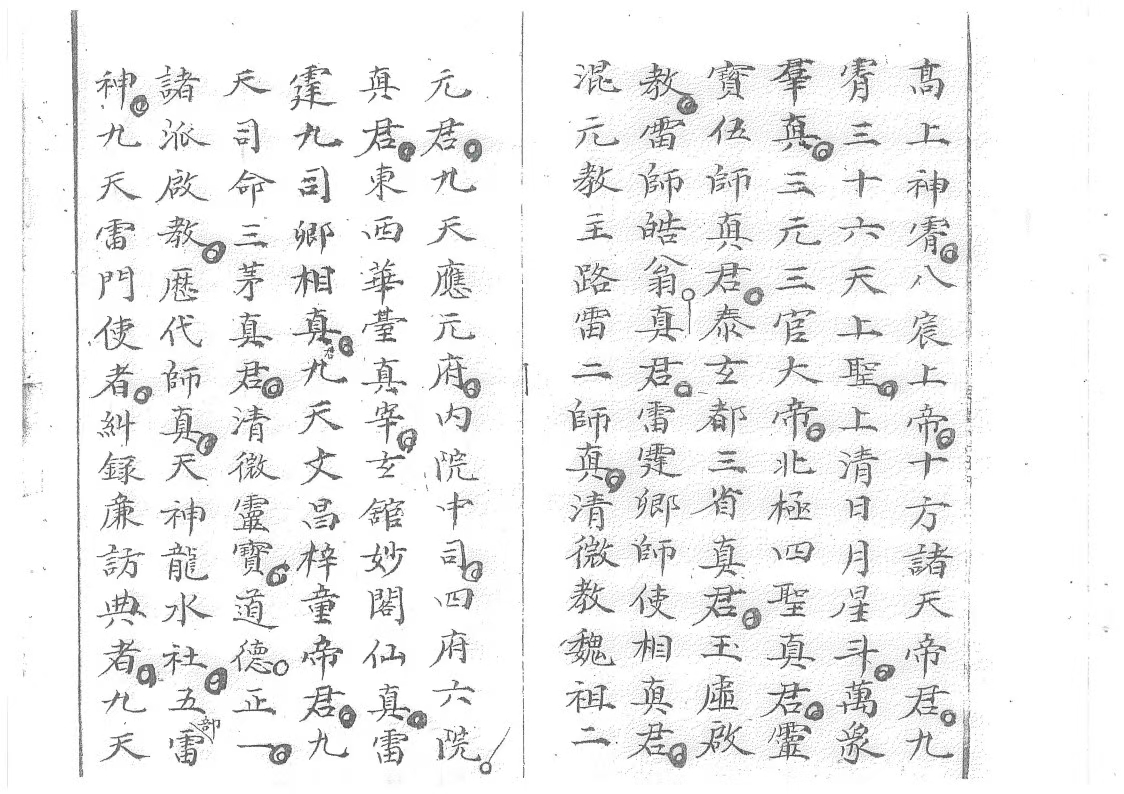 高上神霄八宸上帝十方諸天帝君九
霄三十六天上聖上清日月星斗萬象
羣真三元三官大帝北極四聖真君靈
寳伍師真君泰玄都三省真君玉虛啟
教雷師皓翁真君雷霆卿師使相真君
混元教主路雷二師真清微教魏祖二
元君九天應元府内院中司四府六院
真君東西華臺真宰玄舘妙閣仙真雷
霆九司卿相真君九天文昌梓童帝君九
天司命三茅真君清微靈寳道德正一
諸派啟教歴代師真天神龍水社五部雷
神九天雷門使者糾録廉訪典者九天